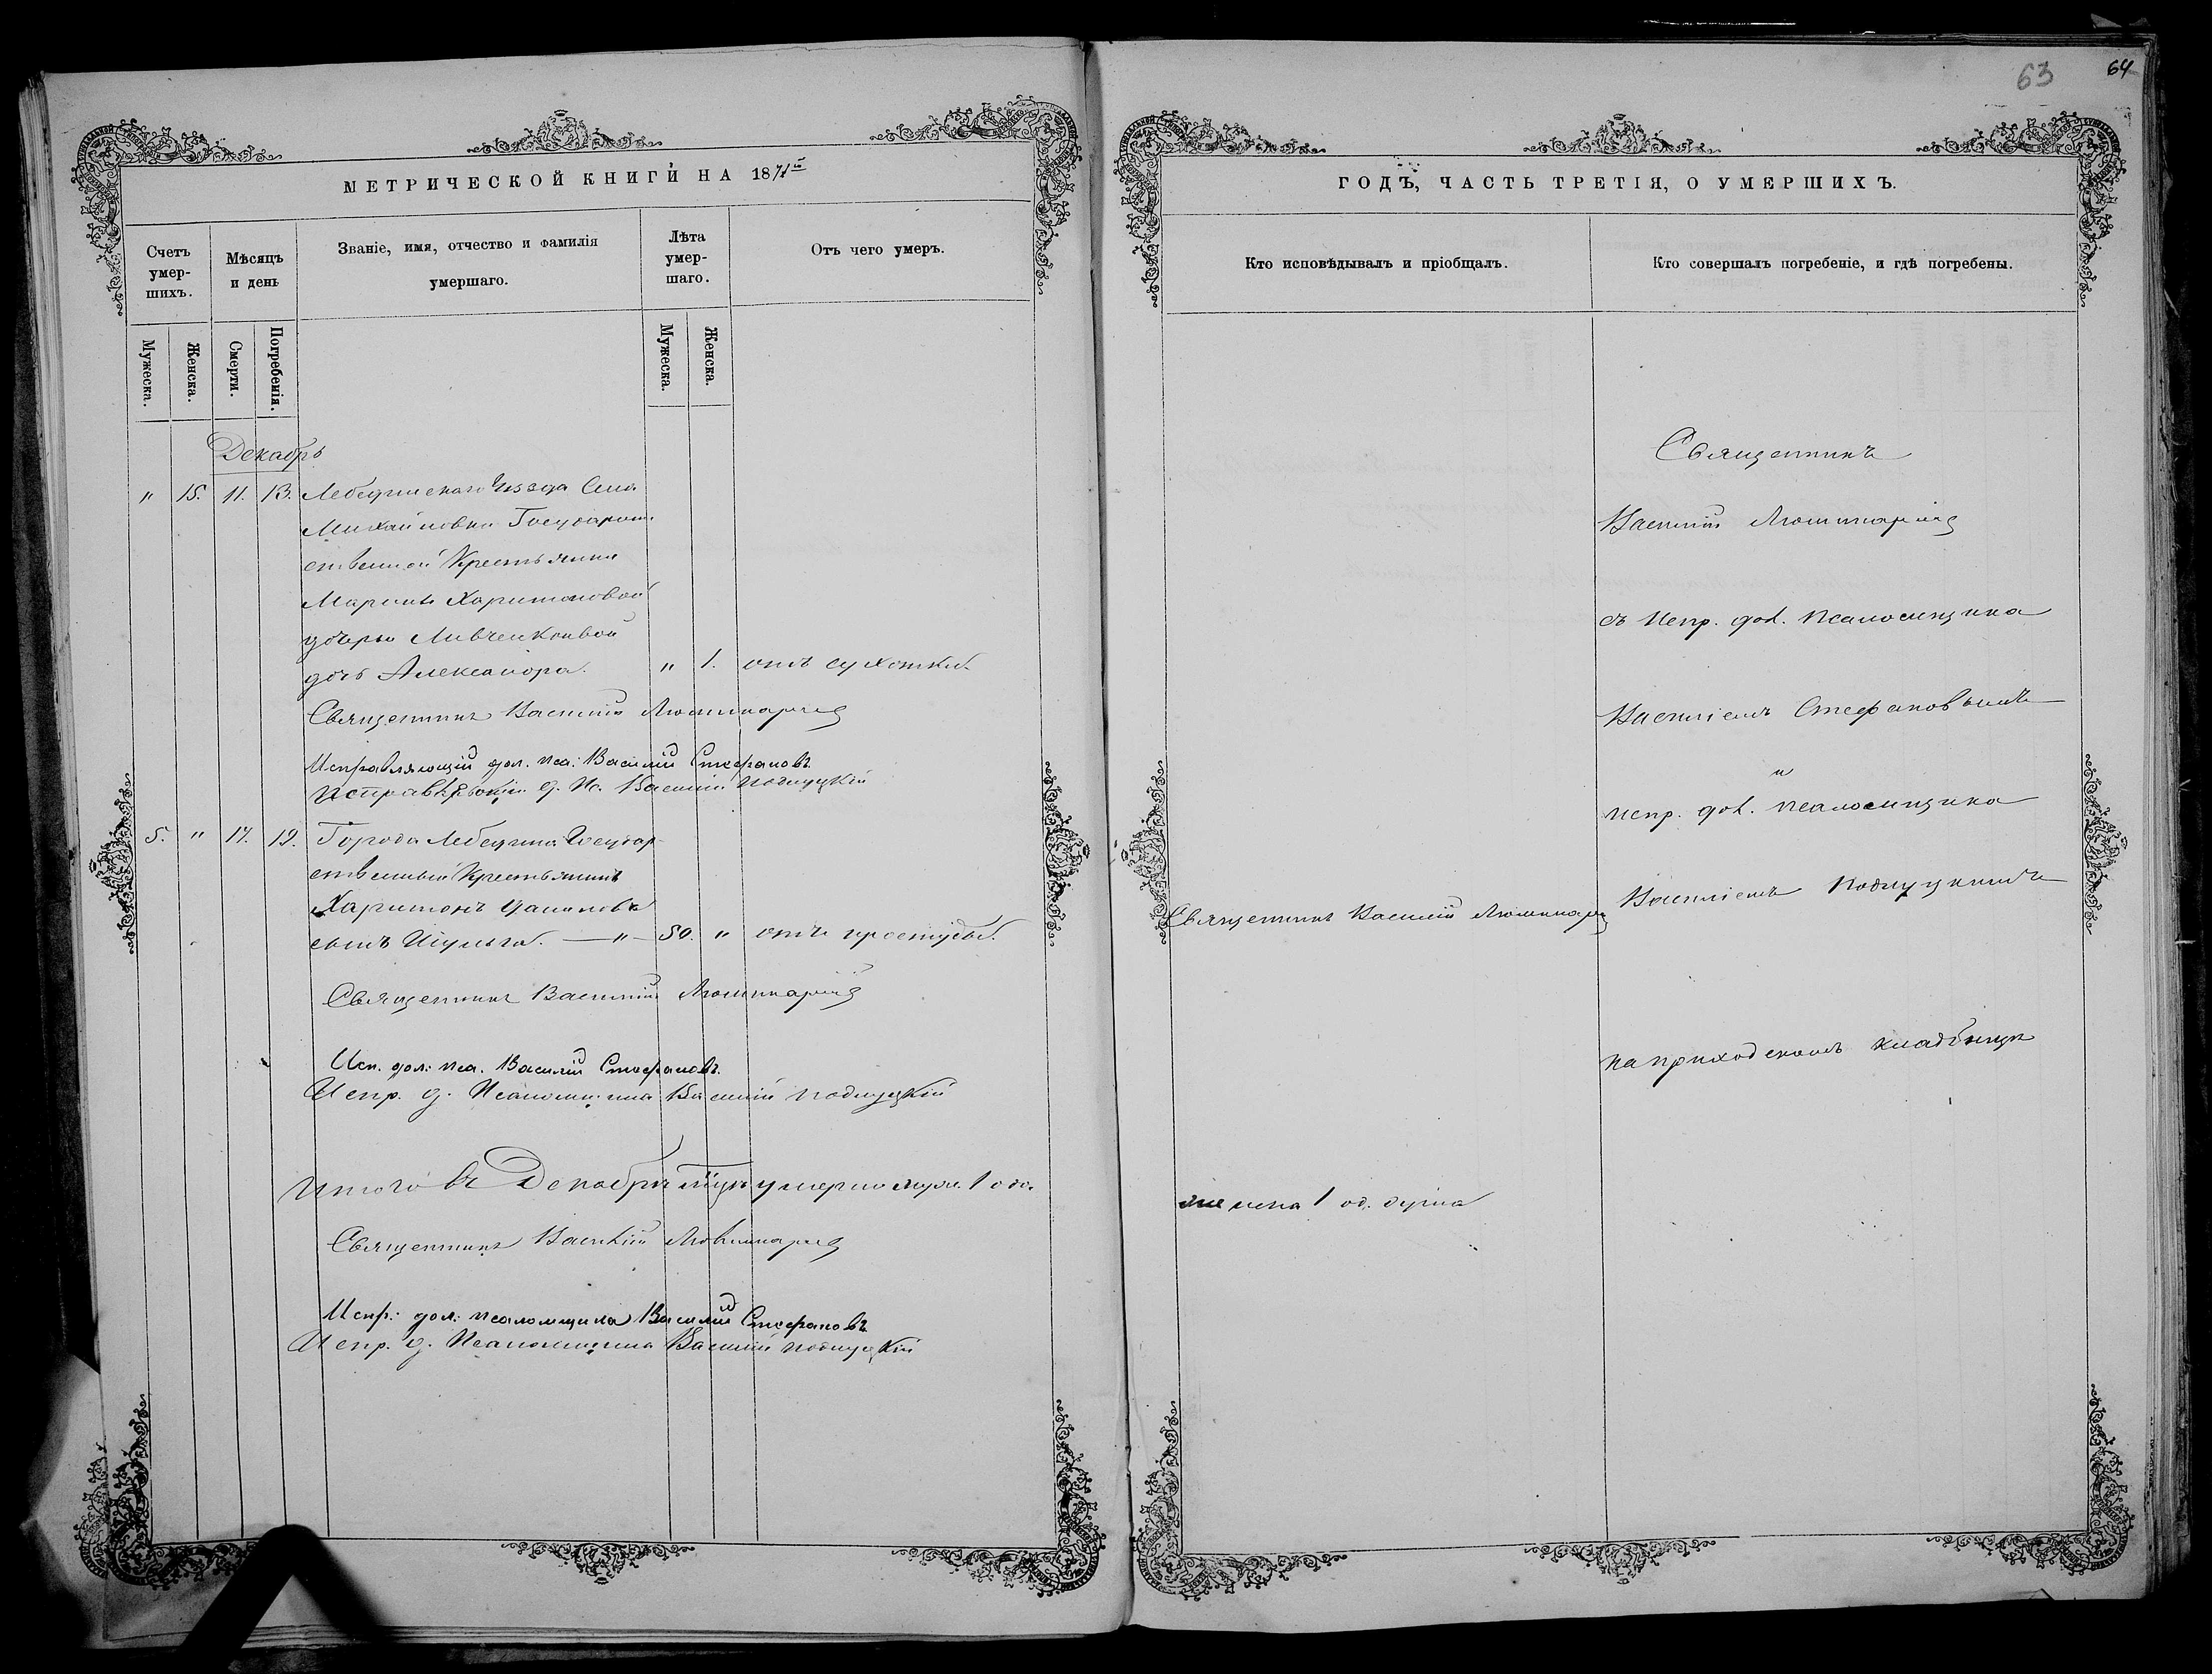 63
64
МЕТРИЧЕСКОЙ КНИГИ НА 1871й
Счетъ умершихъ.
Мѣсяцъ и день
Званіе, имя, отчество и фамилія умершаго.
Лѣта умершаго.
Отъ чего умеръ.
Мужеска.
Женска.
Смерти.
Погребенія.
Мужеска.
Женска.
Декабрь
" 15. 11. 13. Лебединскаго Уѣзда Села
Михайловки Государст
ственной Крестьянки
Харитоновой
дочь Александра. " 1. отъ сухотки.
Священникъ Василій
Исправляющій дол. пса: Василій Стефановъ
Василій
5. " 17. 19. Города Лебедина Государ
ственный Крестьянинъ
Харитонъ
сынъ Шульга. — " — 50. " отъ простуды.
Священникъ Василій
Исп. дол: пса. Василій Стефановъ.
Испр. д. Псаломщика Василій
Итого въ Декабрѣ мцѣ умерло муж. 1 одн.
Священникъ Василій
Испр: дол: псаломщика Василій Стефановъ
Испр. д. Псаломщика Василій
ГОДЪ, ЧАСТЬ ТРЕТІЯ, О УМЕРШИХЪ.
Кто исповѣдывалъ и пріобщалъ.
Кто совершалъ погребеніе, и гдѣ погребены.
Священникъ
Василій
съ Испр. дол. псаломщика
Василіемъ Стефановымъ
и
испр. дол. псаломщика
Василіемъ
Священникъ Василій
на приходскомъ кладбищѣ
женска 1 од. душа